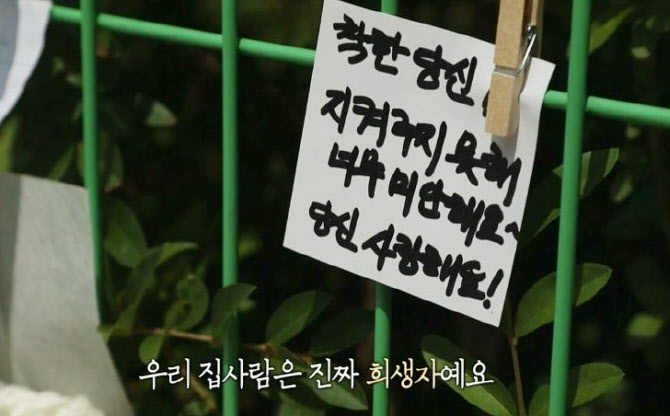 착한 당신
지켜주지 못해
너무 미안해요~
당신 사랑해요!
우리 집사람은 진짜 희생자예요